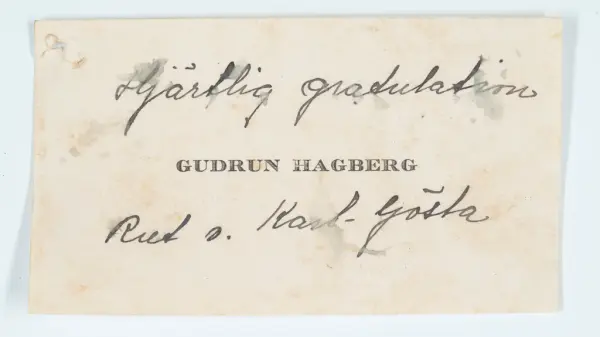 Hjärtlig gratulation
GUDRUN HAGBERG
Rut o. Karl-Gösta